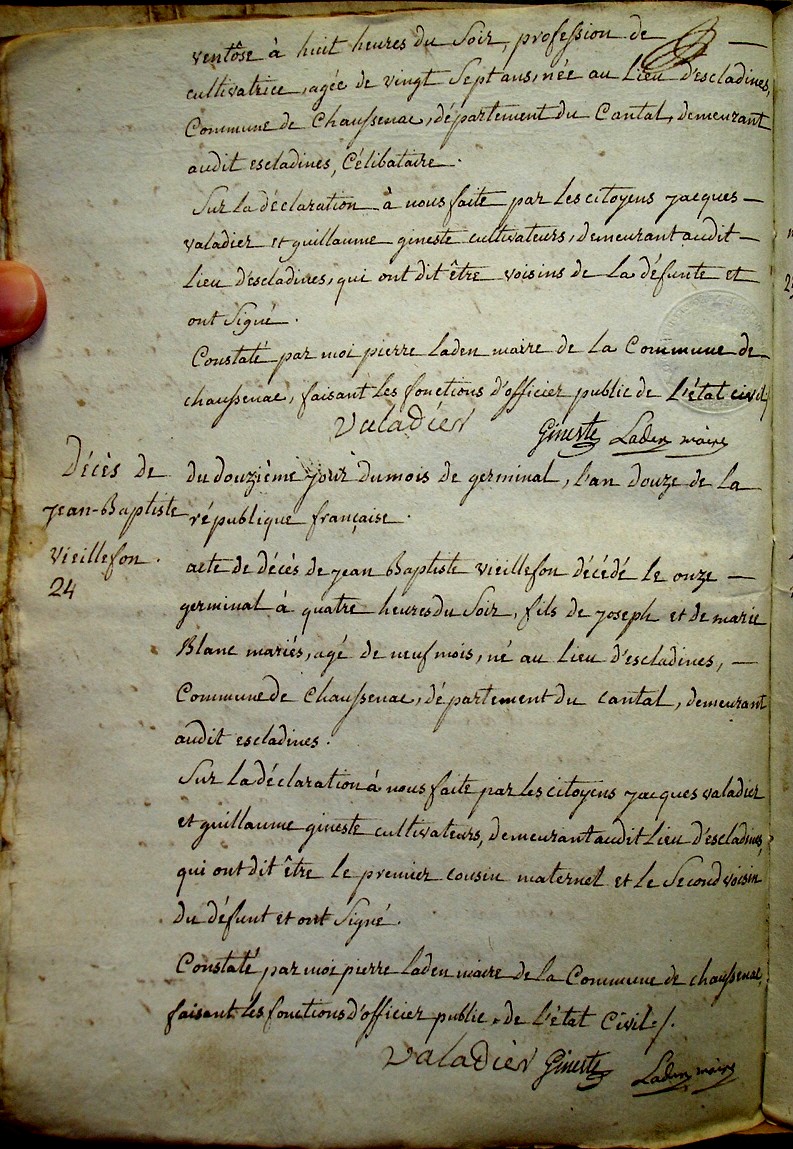 ventôse à huit heures du Soir, profession de —
cultivatrice, agée de vingt Sept ans, née au Lieu d'escladines,
Commune de Chaussenac, département du Cantal, demeurant
audit escladines, Célibataire.
Sur la déclaration à nous faite par les citoyens jacques —
valadier et guillaume gineste cultivateurs, demeurant audit —
Lieu d'escladines, qui ont dit être voisins de La défunte et
ont Signé.
Constaté par moi pierre Laden maire de La Commune de
chaussenac, faisant les fonctions d'officier public de L'état civil,
Valadier
Gineste Laden maire
Décès de
jean-Baptiste
vieillefon.
24
du douzième jour du mois de germinal, l'an douze de la
république française.
acte de décès de jean Baptiste vieillefon décédé le onze —
germinal à quatre heures du Soir, fils de joseph et de marie
Blanc mariés, agé de neuf mois, né au Lieu d'escladines, —
Commune de Chaussenac, département du cantal, demeurant
audit escladines.
Sur la déclaration à nous faite par les citoyens jacques valadier
et guillaume gineste cultivateurs, demeurant audit Lieu d'escladines,
qui ont dit être le premier cousin maternel et le Second voisin
du défunt et ont Signé.
Constaté par moi pierre Laden maire de la Commune de chaussenac,
faisant les fonctions d'officier public de L'état Civil./.
Valadier Gineste Laden maire